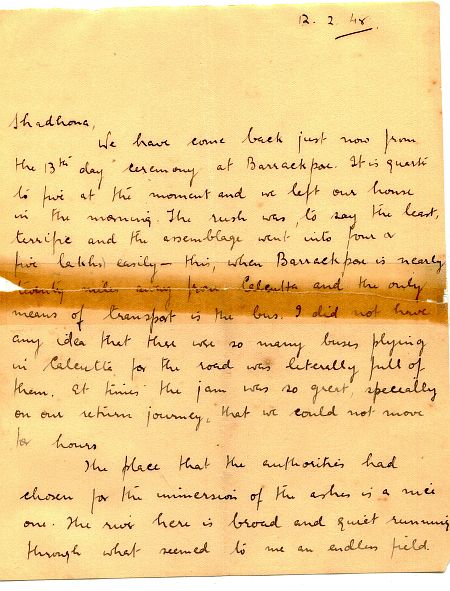 12.2.48.
Shadhona,
We have come back just now from
the 13th day ceremony at Barrackpore. It is quarter
to five at the moment and we left our house
in the morning. The rush was, to say the least,
terrific and the assemblage went into four or
five lakhs easily — this, when Barrackpore is nearly
twenty miles away from Calcutta and the only
means of transport is the bus. I did not have
any idea that there were so many buses plying
in Calcutta for the road was literally full of
them. At times the jam was so great, specially
on our return journey, that we could not move
for hours
The place that the authorities had
chosen for the immersion of the ashes is a nice
one. The river here is broad and quiet running
through what seemed to me an endless field.